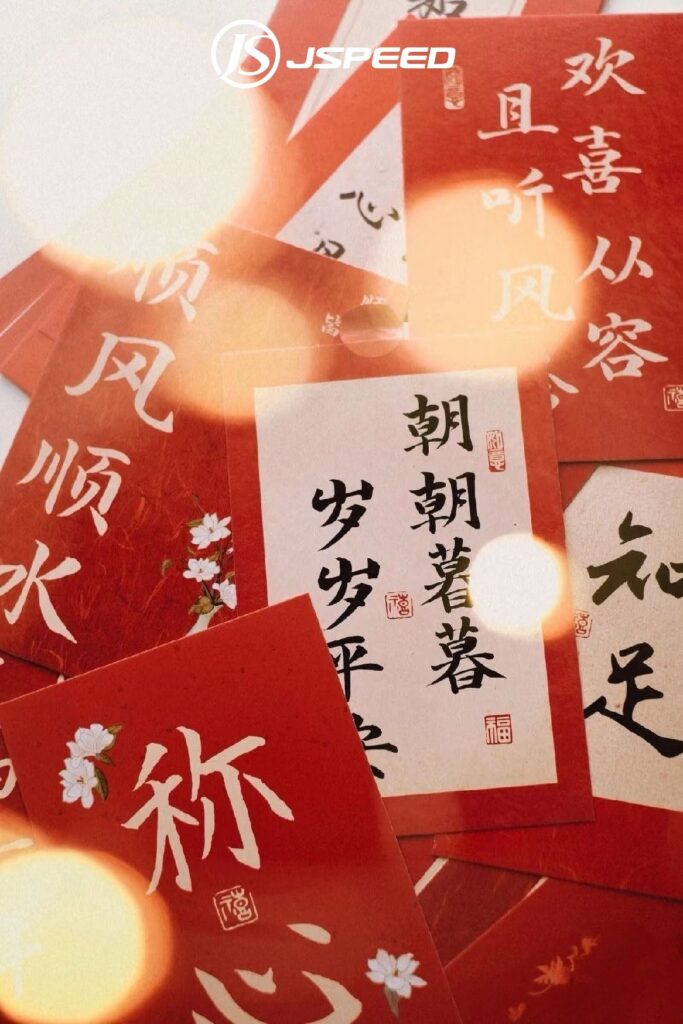 JS JSPEED
欢喜从容
且听风
心
顺风顺水
朝朝暮暮
岁岁平安
福
禧
禧
知足
称心
禧